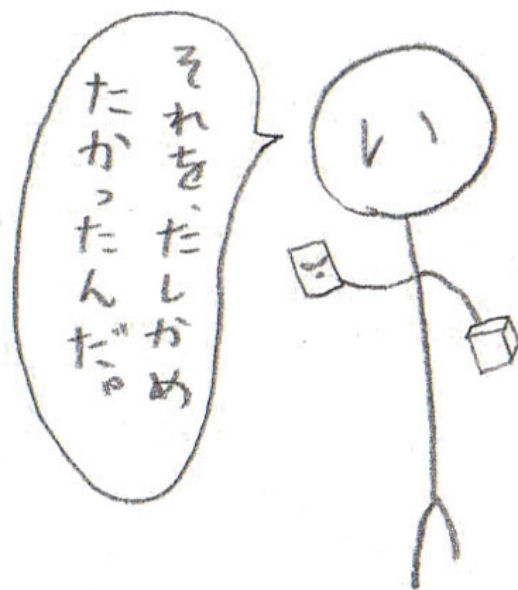 それを、たしかめ
たかったんだ。